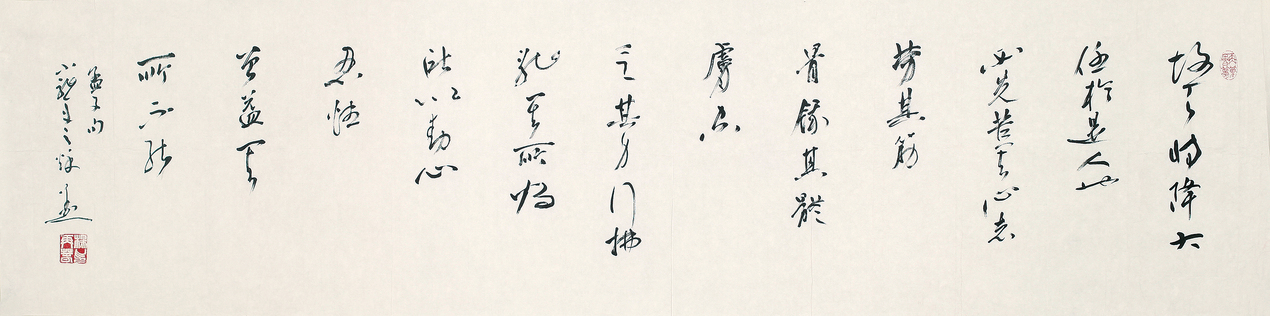 故天将降大
任於是人也
必先苦其心志
劳其筋
骨餓其體
膚空
乏其身行拂
乱其所為
所以動心
忍性
曾益其
所不能
孟子句